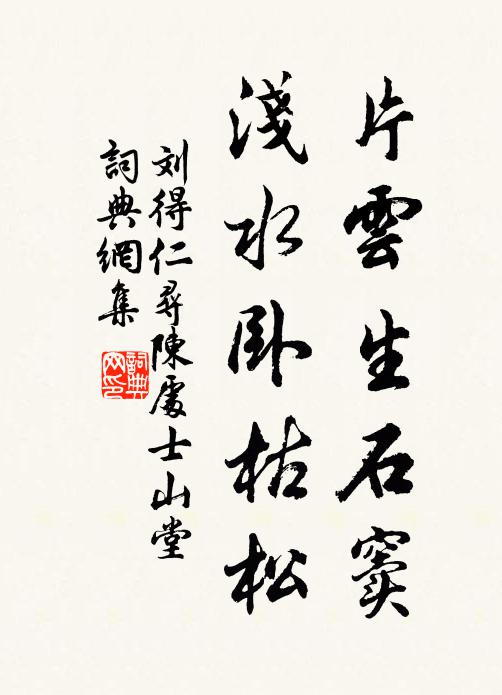 片雲生石竇
淺水臥枯松
刘得仁尋陳處士山堂
詞典網集
詞典网印